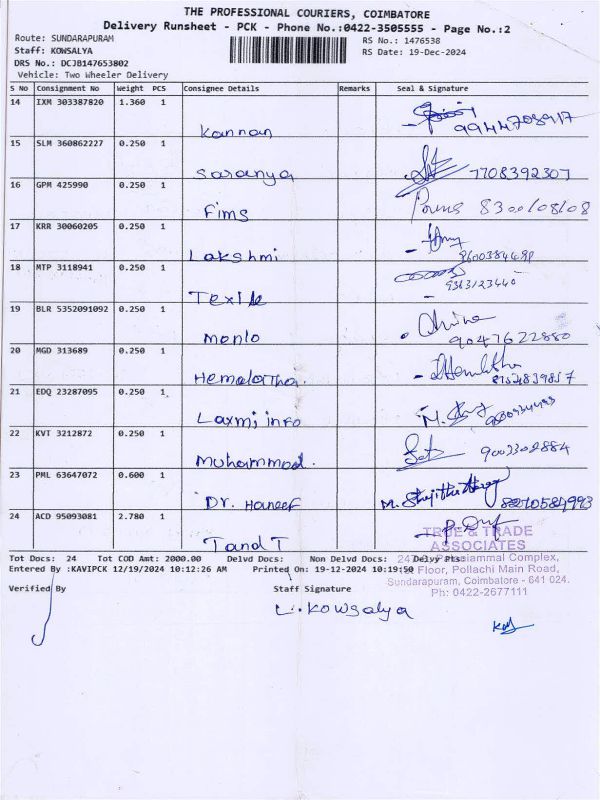 THE PROFESSIONAL COURIERS, COIMBATORE
Delivery Runsheet - PCK - Phone No.:0422-3505555 - Page No.:2
Route: SUNDARAPURAM
RS No.: 1476538
Staff: KOWSALYA
RS Date: 19-Dec-2024
DRS No.: DCJB147653802
Vehicle: Two Wheeler Delivery
S No Consignment No Weight PCS Consignee Details Remarks Seal & Signature
14 IXM 303387820 1.360 1
Kannan 9944708917
15 SLM 360862227 0.250 1
Saranya 7708392307
16 GPM 425990 0.250 1
Fims 8300108108
17 KRR 30060205 0.250 1
Lakshmi
18 MTP 3118941 0.250 1
9363123440
19 BLR 5352091092 0.250 1
9047622880
20 MGD 313689 0.250 1
21 EDQ 23287095 0.250 1
Laxmi info
22 KVT 3212872 0.250 1
Muhammod. 9003302884
23 PML 63647072 0.600 1
Dr. Haneef
24 ACD 95093081 2.780 1
Tand T
TRUE & TRADE
ASSOCIATES
Tot Docs: 24 Tot COD Amt: 2000.00 Delvd Docs: Non Delvd Docs: Delvy Pts:
Complex,
Entered By :KAVIPCK 12/19/2024 10:12:26 AM Printed On: 19-12-2024 10:19:50
Floor, Pollachi Main Road,
Sundarapuram, Coimbatore - 641 024.
Ph: 0422-2677111
Verified By Staff Signature
L. Kowsalya